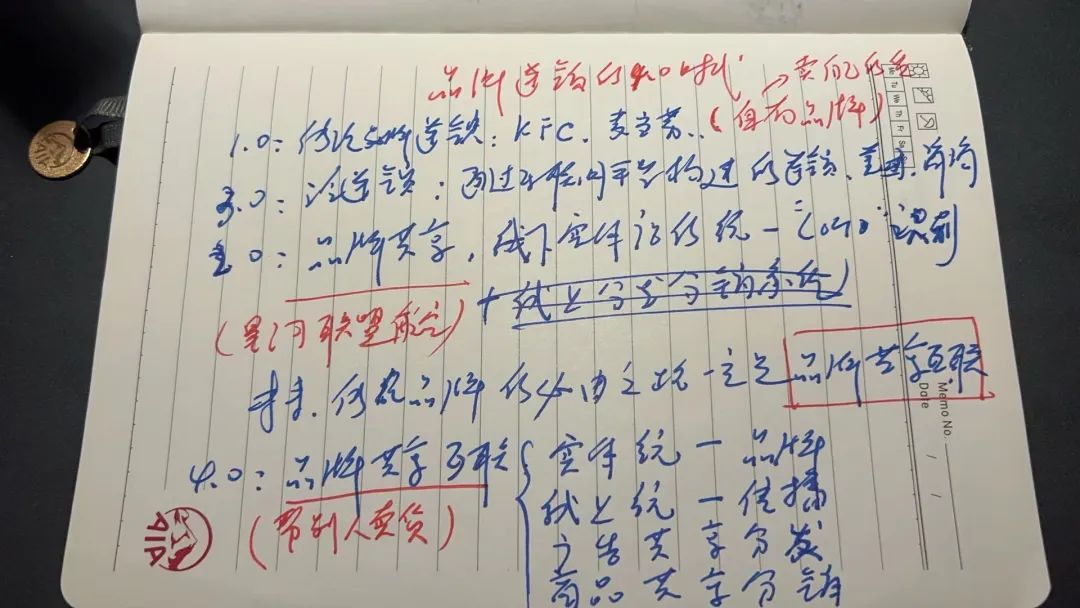 品牌连锁的4.0时代
→卖自己的货
(自有品牌)
1.0:传统品牌连锁:KFC.麦当劳..
3.0:泛连锁:通过互联网平台构建的连锁.美团.
2.0:品牌共享,线下实体店的统一
(星河联盟
+线上分享分销系统
未来.传统品牌的必由之路一定是品牌共享互联
4.0:品牌共享互联
(帮别人卖货)
实体统一品牌
线上统一传播
广告共享分发
商品共享分销
AIA
Memo No.
Date / /